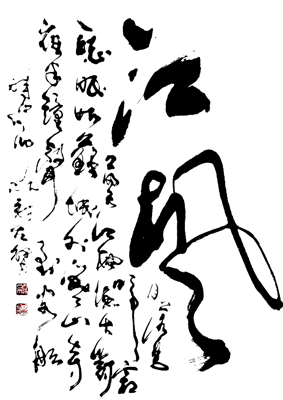 江楓
月落烏
啼霜
滿天江楓漁火對
愁眠姑蘇城外寒山寺
夜半鐘聲到客船